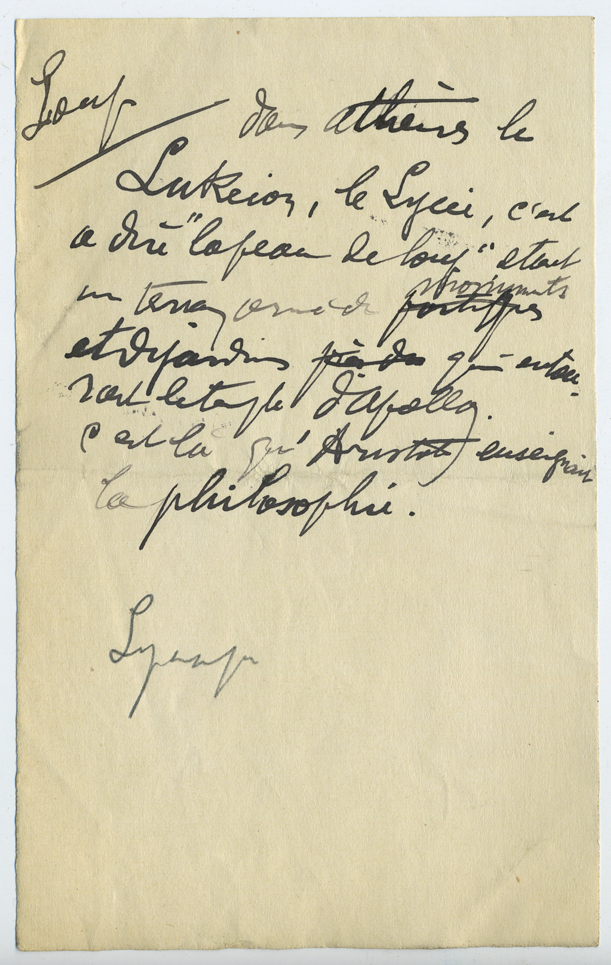 Loup
dans athènes le
Lukeion, le Lycée, c'est
a dire "la peau de loup" etant
monuments
un terrain orné de portiques
et de jardins près du qui entou-
rait le temple d'Apollon.
C'est là qu'Aristote enseignait
la philosophie.